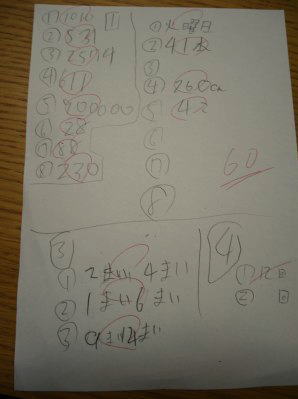 1
① 1010
② 531
③ 2514
④ 611
⑤ 200000
⑥ 28
⑦ 88
⑧ 230
① 火曜日
② 41枚
③
④ 260a
⑤ 42
⑥
⑦
⑧
60
3
① 2まい 4まい
② 1まい 6まい
③ 0まい 12まい
4
① 12日
② 日